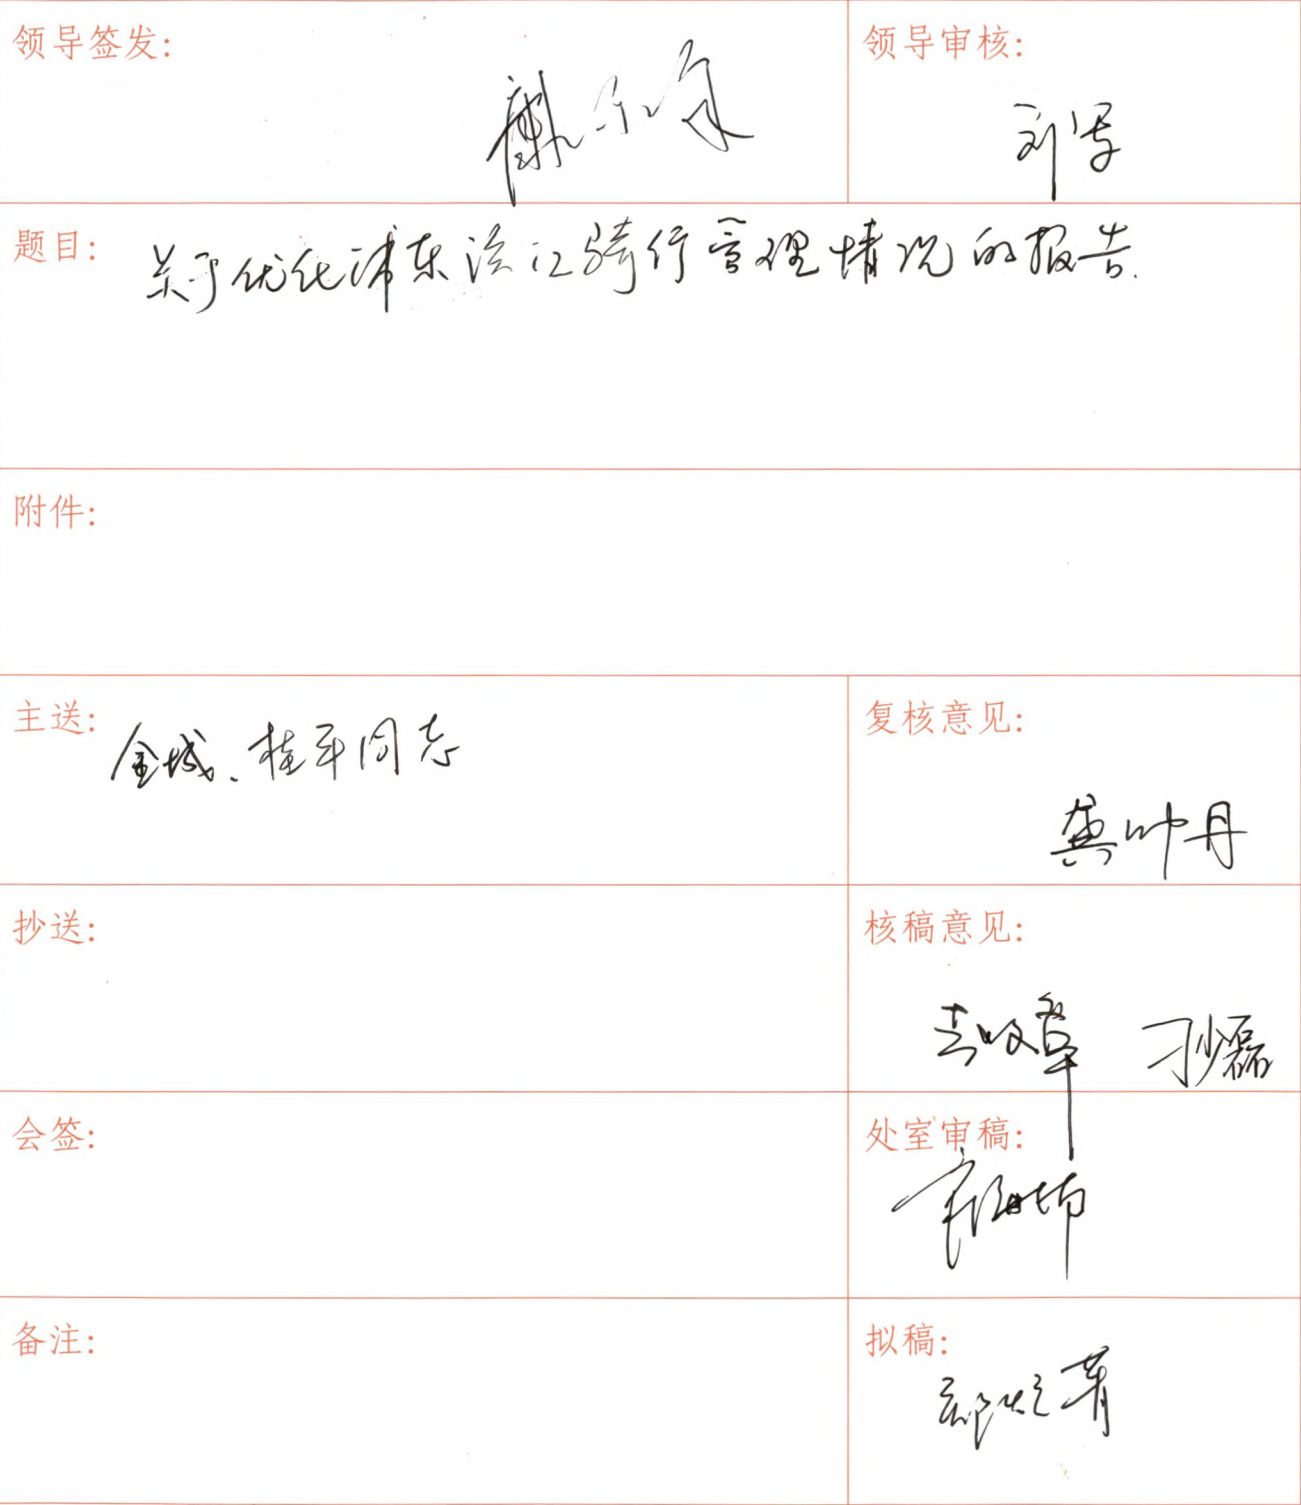 领导签发:
领导审核:
题目: 关于优化浦东滨江骑行管理情况的报告.
附件:
主送: 金城、桂平同志
复核意见:
龚帅丹
抄送:
核稿意见:
刁少磊
会签:
处室审稿:
备注:
拟稿: